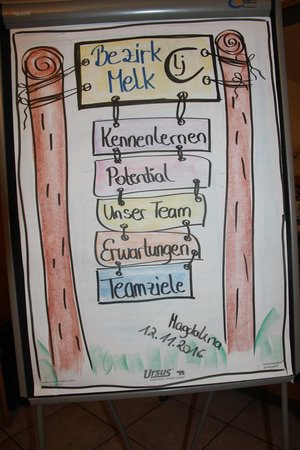 Bezirk
Melk
lj
Kennenlernen
Potential
Unser Team
Erwartungen
Teamziele
Magdalena
12.11.2016
URSUS